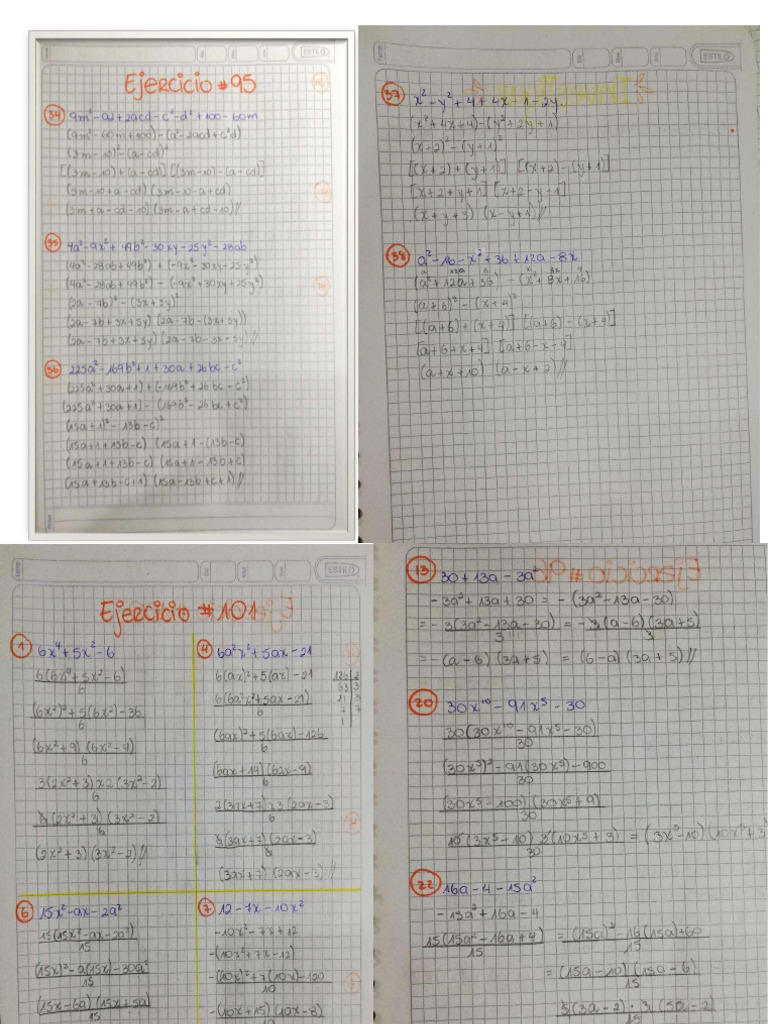 ESTILO
Ejercicio #95
34 9m²-a²+2acd-c²d²+100-60m
(9m²-60m+100)-(a²-2acd+c²d)
(3m-10)²-(a-cd)²
[(3m-10)+(a-cd)] [(3m-10)-(a-cd)]
(3m-10+a-cd)(3m-10-a+cd)
(3m+a-cd-10)(3m-a+cd-10)//
35 4a²-9x²+49b²-30xy-25y²-28ab
(4a²-28ab+49b²)+(-9x²-30xy-25y²)
(4a²-28ab+49b²)-(-9x²+30xy+25y²)
(2a-7b)²-(3x+5y)²
(2a-7b+3x+5y)(2a-7b-(3x+5y))
(2a-7b+3x+5y)(2a-7b-3x-5y)//
36 225a²-169b²+1+30a+26bc-c²
(225a²+30a+1)+(-169b²+26bc-c²)
(225a²+30a+1)-(169b²-26bc+c²)
(15a+1)²-13b-c)²
(15a+1+13b-c)(15a+1-(13b-c)
(15a+1+13b-c)(15a+1-13b+c)
(15a+13b-c+1)(15a-13b+c+1)//
ESTILO
37 x²-y²+4+4x-1-2y
(x²+4x+4)-(y²+2y+1)
(x+2)²-(y+1)²
[(x+2)+(y+1)] [(x+2)-(y+1)]
[x+2+y+1] [x+2-y-1]
(x+y+3)(x-y+1)//
38 a²-16-x²+36+12a-8x
(a²+12a+36)-(x²+8x+16)
(a+6)²-(x+4)²
[(a+6)+(x+4)] [(a+6)-(x+4)]
[a+6+x+4] [a+6-x-4]
(a+x+10)(a-x+2)//
ESTILO
Ejercicio #101
1 6x⁴+5x²-6
6(6x⁴+5x²-6)
6
(6x²)²+5(6x²)-36
6
(6x²+9)(6x²-4)
6
3(2x²+3)x2(3x²-2)
6
6(2x²+3)(3x²-2)
6
(2x²+3)(3x²-2)//
4 6a²x²+5ax-21
6(ax)²+5(ax)-21
6(6a²x²+5ax-21)
6
(6ax)²+5(6ax)-126
6
(6ax+14)(6ax-9)
6
2(3ax+7)x3(2ax-3)
6
6(3ax+7)(2ax-3)
6
(3ax+7)(2ax-3)//
126 2
63 3
21 3
7 7
1
6 15x²-ax-2a²
15(15x²-ax-2a²)
15
(15x)²-a(15x)-30a²
15
(15x-6a)(15x+5a)
15
7 12-7x-10x²
-10x²-7x+12
-(10x²+7x-12)
-(10x)²+7(10x)-120
10
-(10x+15)(10x-8)
13 30+13a-3a²
-3a²+13a+30=-(3a²-13a-30)
=-3(3a²-13a-30)=-3(a-6)(3a+5)
3 3
=-(a-6)(3a+5)=(6-a)(3a+5)//
20 30x¹⁰-91x⁵-30
30(30x¹⁰-91x⁵-30)
30
(30x⁵)²-91(30x⁵)-900
30
(30x⁵-100)(30x⁵+9)
30
10(3x⁵-10)3(10x⁵+3)=(3x⁵-10)(10x⁵+3)
30
22 16a-4-15a²
-15a²+16a-4
15(15a²-16a+4)=(15a)²-16(15a)+60
15 15
=(15a-10)(15a-6)
15
5(3a-2)·3(5a-2)